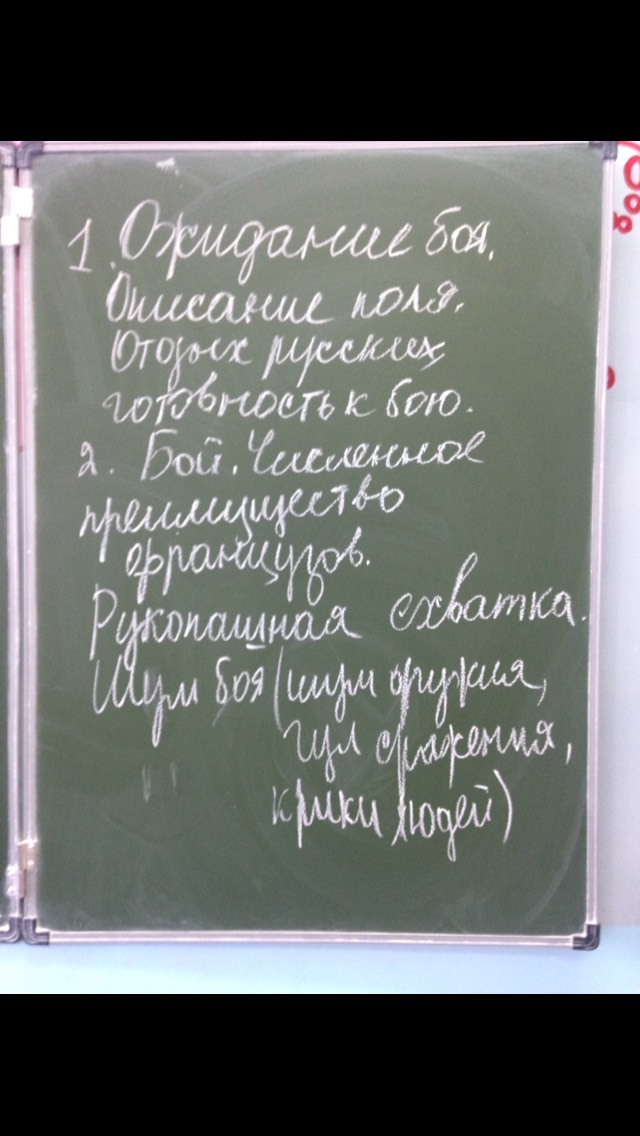 1. Ожидание боя.
Описание поля.
Отдых русских
готовность к бою.
2. Бой. Численное
преимущество
французов.
Рукопашная схватка.
Шум боя (шум оружия,
гул сражения,
крики людей)